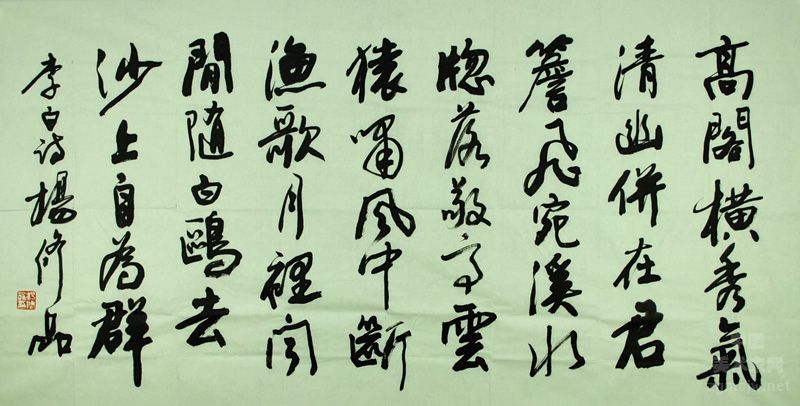 高閣横秀氣
清幽併在君
簷飛宛溪水
牕落敬亭雲
猿嘯風中斷
漁歌月裡聞
閒隨白鷗去
沙上自為群
李白詩楊修品